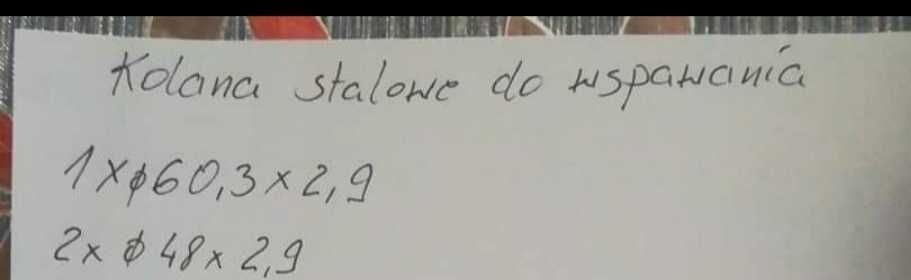 Kolana stalowe do wspawania
1x⌀60,3x2,9
2x ⌀48x2,9